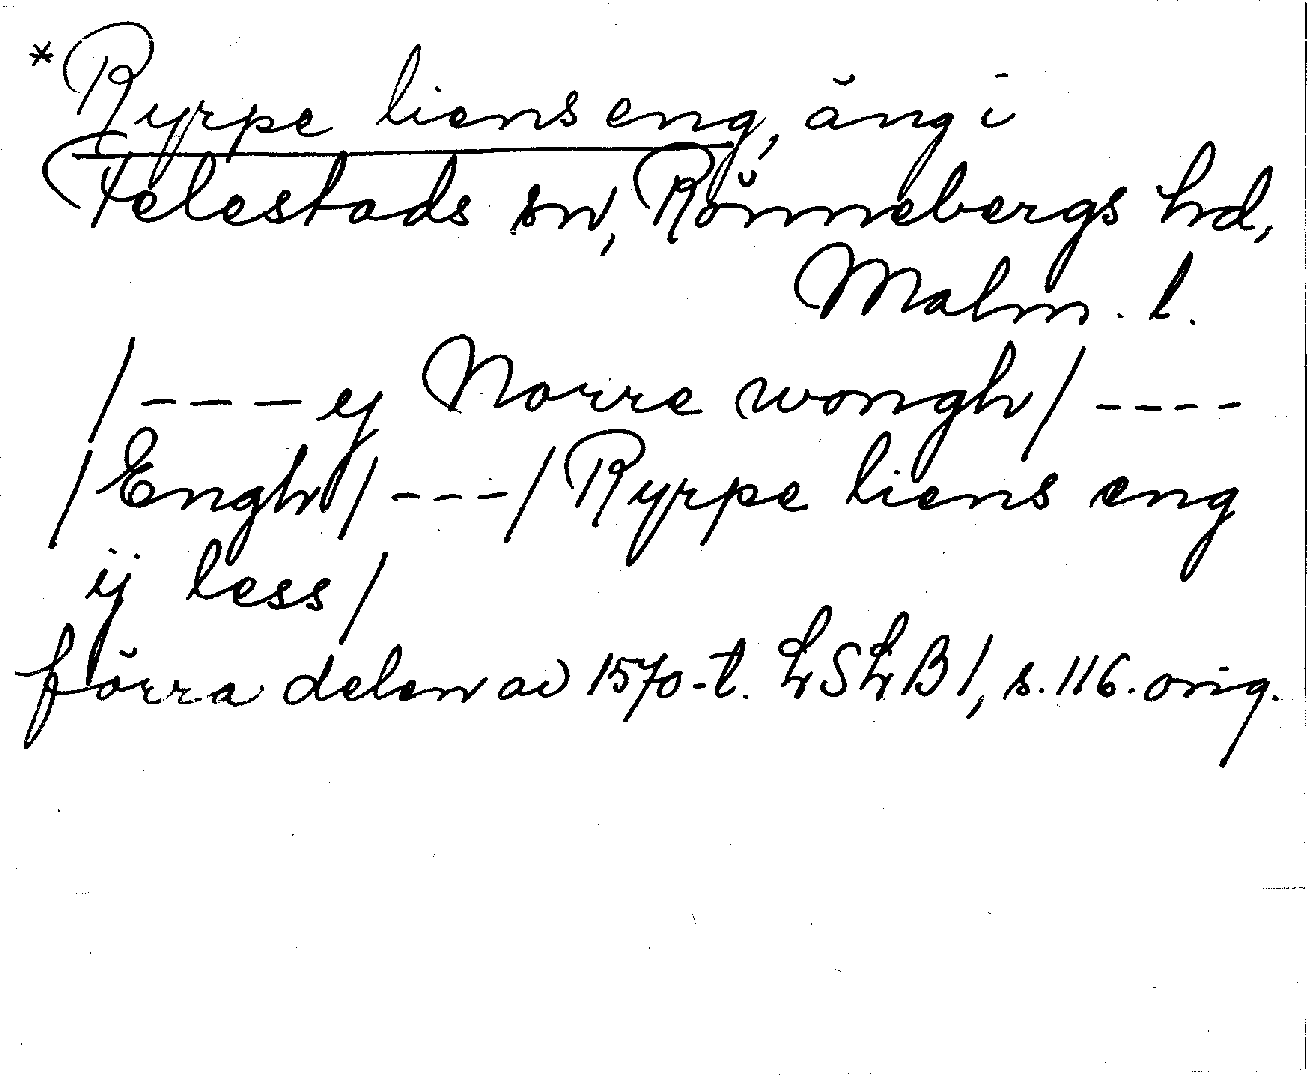 *Ryrpe liens eng, äng i
Felestads sn, Rönnebergs hd,
Malm. l.
/---- y Norre wongh/----
/Engh/---/Ryrpe liens eng
ij less/
förra delen av 1570-t. LSLB1, s. 116. orig.